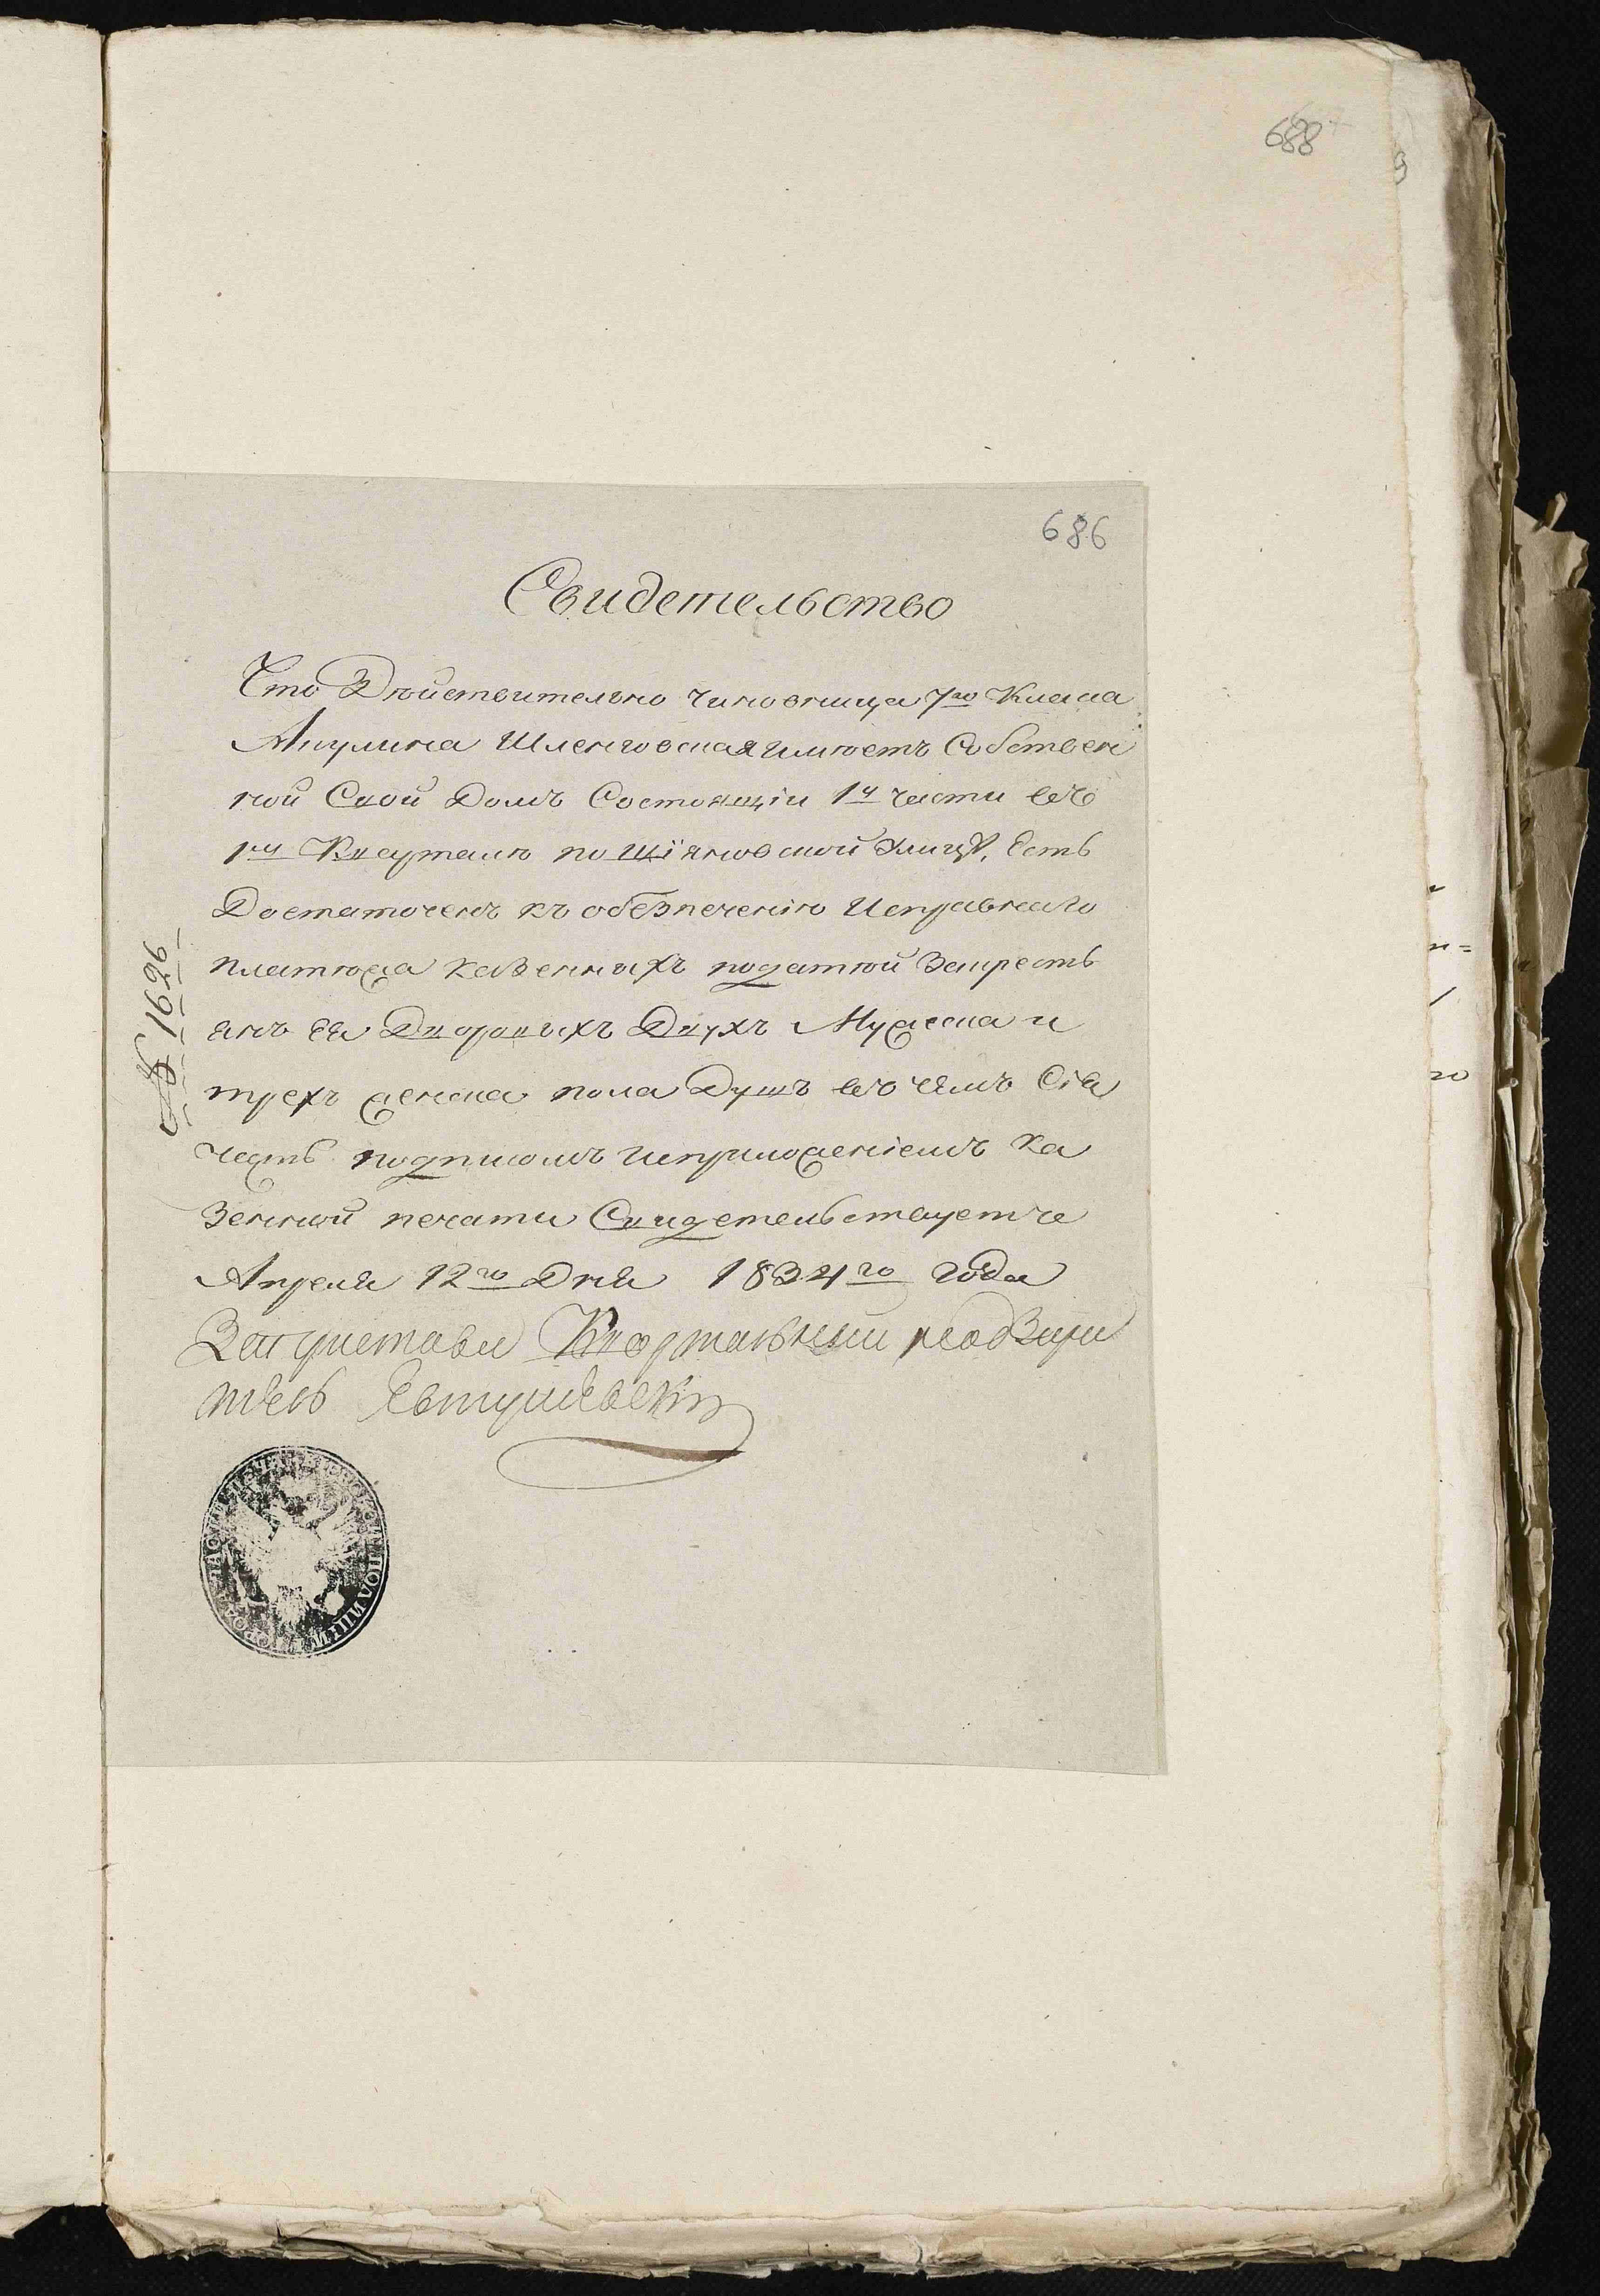 688
686
Свидетельство
Что Дѣйствительно чиновница 7го Класа
Акулина Шленговская имѣетъ Собствен
ной Свой Домъ Состоящіи 1й части въ
1мъ Квартали по улицѣ, Есть
Достаточенъ къ обезпеченію Исправнаго
платюжа казенныхъ податюй Закресть
янъ ея Дворовыхъ Двухъ Мужеска и
трехъ женска пола Душъ въ чемъ Сія
часть подписомъ и приложеніемъ Ка
Зенной печати Свидетельствуетъ
Апреля 12го Дня 1834го года
За пристава Квартальный надзира
тель Евтушевскій